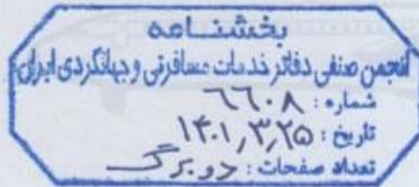 بخشنامه
انجمن صنفی دفاتر خدمات مسافرتی و جهانگردی ایران
شماره : ٦٦٠٨
تاریخ : ۱۴۰۱٫۳٫۲۵
تعداد صفحات : دو برگ